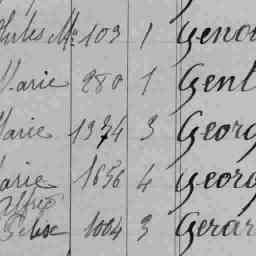 Jules Me 103 1 Geno
Marie 280 1 Gent
Marie 1374 3 Georg
Marie 1656 4 Georg
Alfred
Félix 1004 3 Gerar